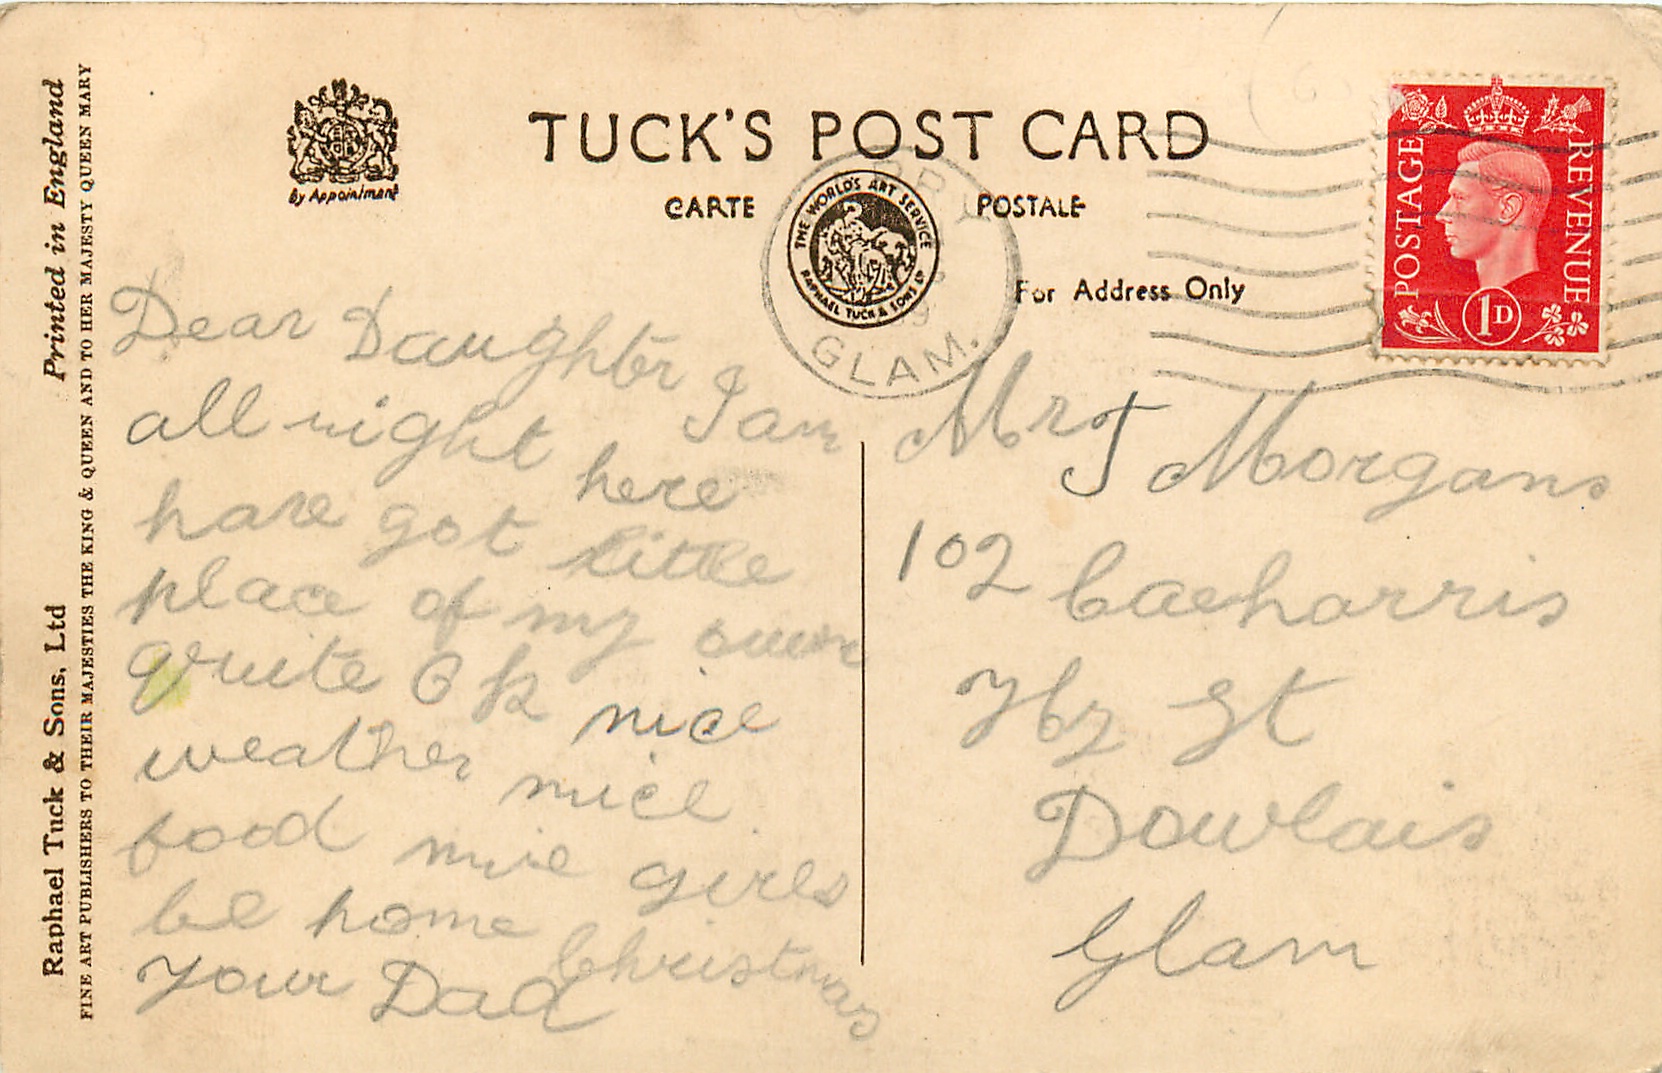 TUCK'S POST CARD
CARTE POSTALE
By Appointment
THE WORLD'S ART SERVICE
RAPHAEL TUCK & SONS LD
For Address Only
GLAM.
POSTAGE REVENUE
1D
Printed in England
Raphael Tuck & Sons, Ltd
FINE ART PUBLISHERS TO THEIR MAJESTIES THE KING & QUEEN AND TO HER MAJESTY QUEEN MARY
Dear Daughter I am
all right here
have got little
place of my own
quite OK nice
weather nice
food nice girls
be home Christmas
Your Dad
Mrs J Morgans
102 Caeharris
St
Dowlais
Glam